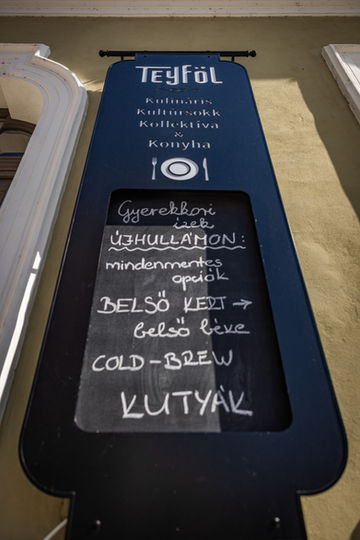 Teyföl
Kulináris
Kultúrsokk
Kollektíva
&
Konyha
Gyerekkori
ízek
ÚJHULLÁMON:
mindenmentes
opciók
BELSŐ KERT →
belső béke
COLD-BREW
KUTYÁK